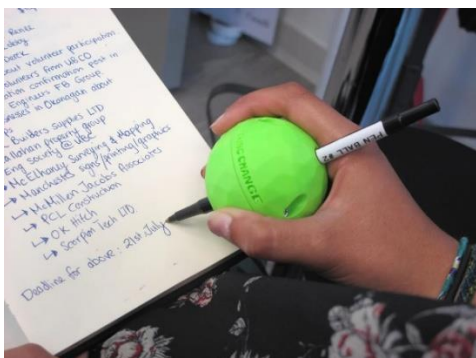 about volunteer participation
volunteers from UBCO
confirmation post in
Engineers FB Group
in Okanagan about
Builders supplies LTD
Callahan property group
Eng society @ UBC
↳ McElhanney Surveying & Mapping
↳ Manchester signs/printing/graphics
↳ McMillen Jacobs Associates
↳ PCL Construction
↳ OK Hitch
↳ Scorpion Tech LTD
Deadline for above: 21st July
CHANGE
PEN BALL #2